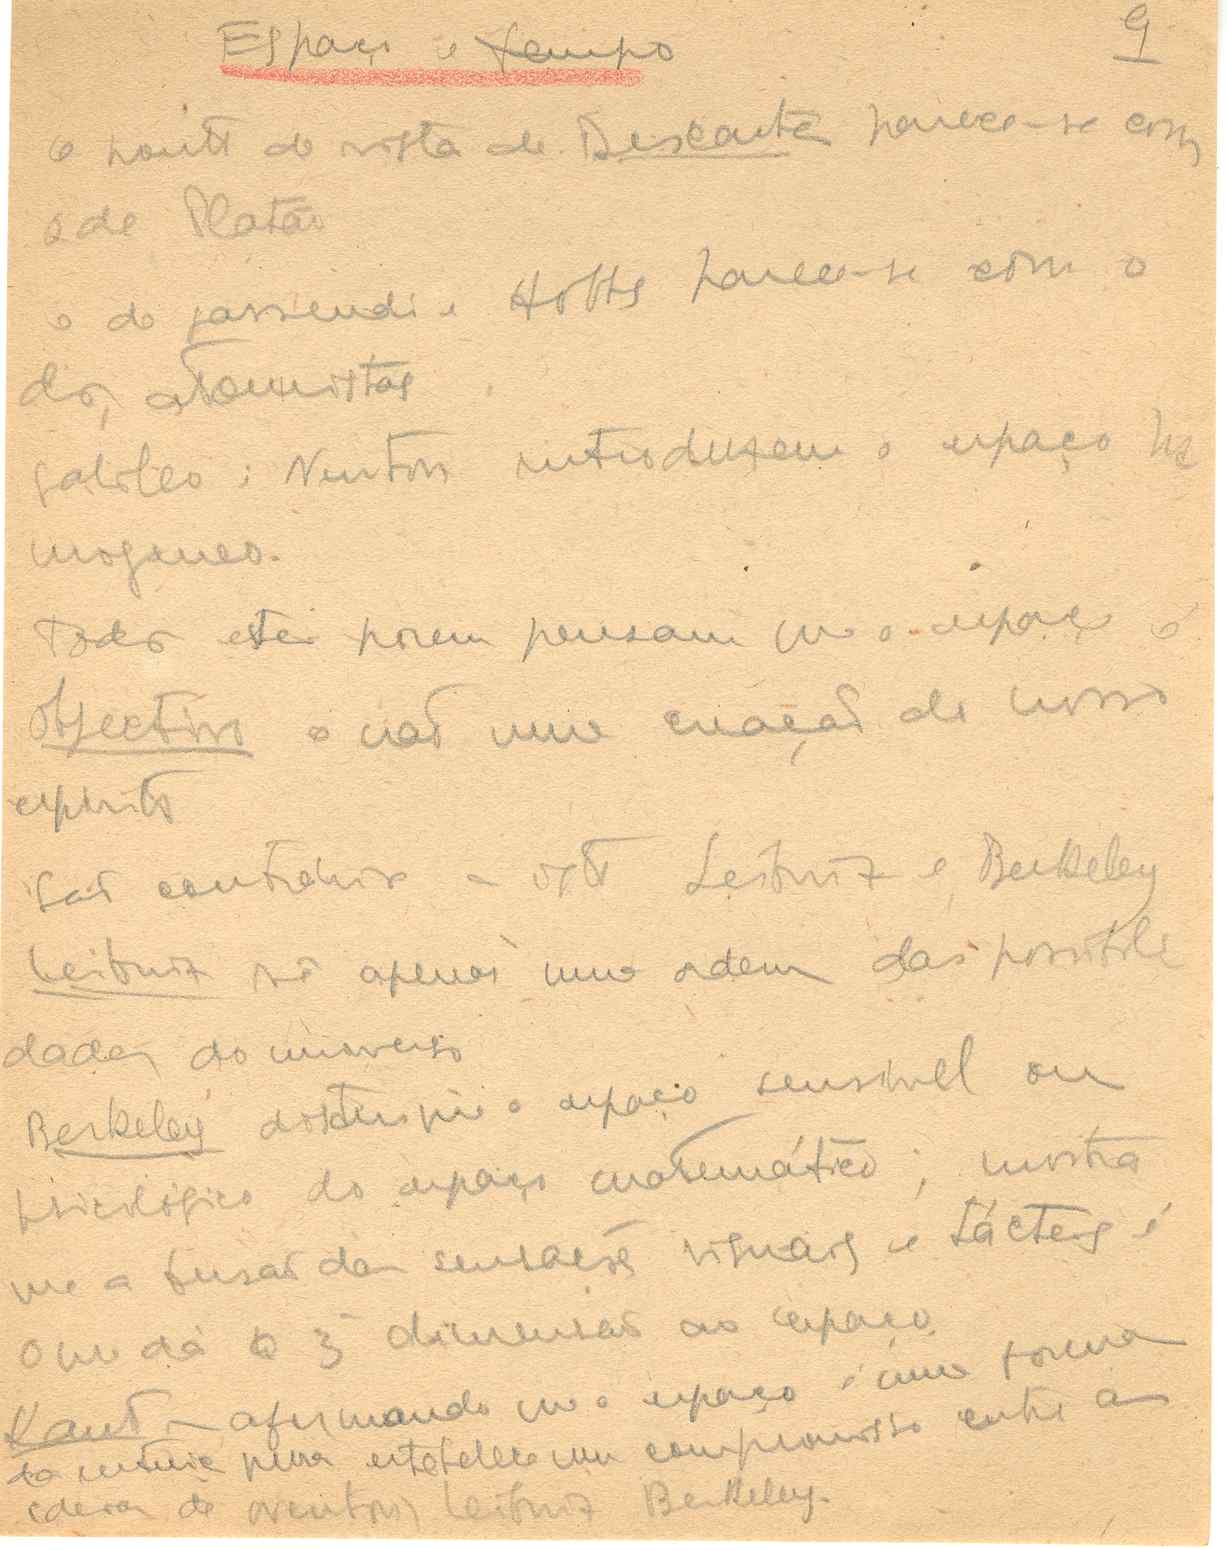 Espaço e tempo
9
o ponto de vista de Descartes parece-se com
o de Platão
o de Gassendi e Hobbes parece-se com o
dos atomistas
Galileo e Newton introduzem o espaço ho
mogeneo.
Todos estes porem pensam que o espaço é
objectivo e não uma creação de nosso
espirito
São contrarios a isto Leibniz e Berkeley
Leibniz vê apenas uma ordem das possibili
dades do universo
Berkeley distingue o espaço sensivel ou
psicológico do espaço matemático; mostra
que a fusão das sensações visuais e tácteis é
o que dá a 3ª dimensão ao espaço
Kant - afirmando que o espaço é uma forma
da intuição pura estabelece um compromisso entre as
ideias de Newton, Leibniz Berkeley.